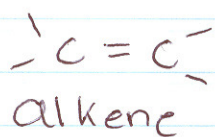 C = C
alkene